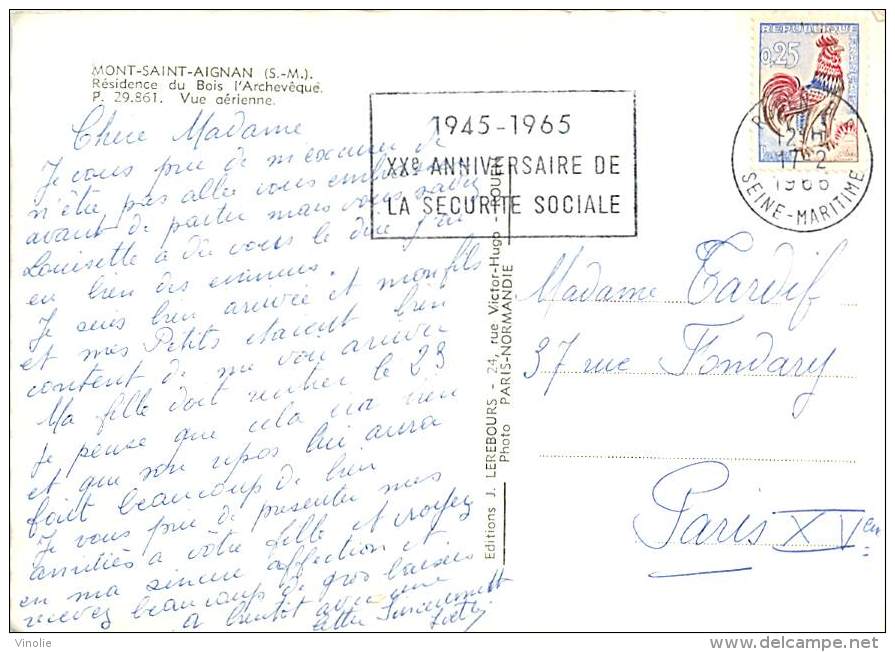 MONT-SAINT-AIGNAN (S.-M.).
Résidence du Bois l'Archevêque.
P. 29.861. Vue aérienne.
Chère Madame
Je vous prie de m'excuser de
n'être pas allée vous embrasser
avant de partir mais vous savez
Louisette a dû vous le dire j'ai
eu bien des ennuis.
Je suis bien arrivée et mon fils
et mes Petits étaient bien
content de me voir arriver
Ma fille doit rentrer le 23
Je pense que cela ira bien
et que son repos lui aura
fait beaucoup de bien
Je vous prie de présenter mes
amitiés a vôtre fille et croyez
en ma sincère affection et
recevez beaucoup de gros baisers
a bientôt avec une
lettre
1945-1965
XXe ANNIVERSAIRE DE
LA SECURITE SOCIALE
REPUBLIQUE FRANÇAISE
0,25
ROUEN
12 H
17-2
1966
SEINE-MARITIME
Editions J. LEREBOURS - 24, rue Victor-Hugo - ROUEN
Photo PARIS-NORMANDIE
Madame Tardif
37 rue Fondary
Paris XVem
Vinolie
delcampe.net